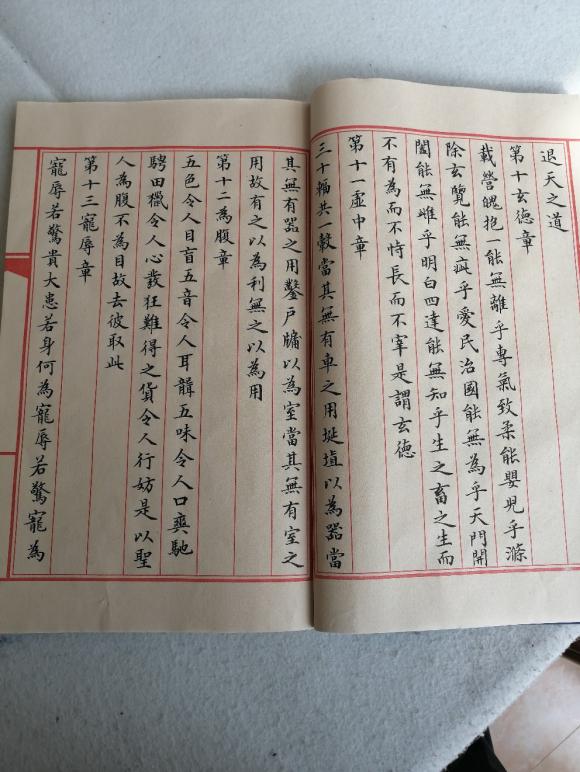 退天之道
第十玄德章
載營魄抱一能無離乎專氣致柔能嬰兒乎滌
除玄覽能無疵乎愛民治國能無為乎天門開
闔能無雌乎明白四達能無知乎生之畜之生而
不有為而不恃長而不宰是謂玄德
第十一虛中章
三十輻共一轂當其無有車之用埏埴以為器當
其無有器之用鑿戶牖以為室當其無有室之
用故有之以為利無之以為用
第十二為腹章
五色令人目盲五音令人耳聾五味令人口爽馳
騁田獵令人心發狂難得之貨令人行妨是以聖
人為腹不為目故去彼取此
第十三寵辱章
寵辱若驚貴大患若身何為寵辱若驚寵為